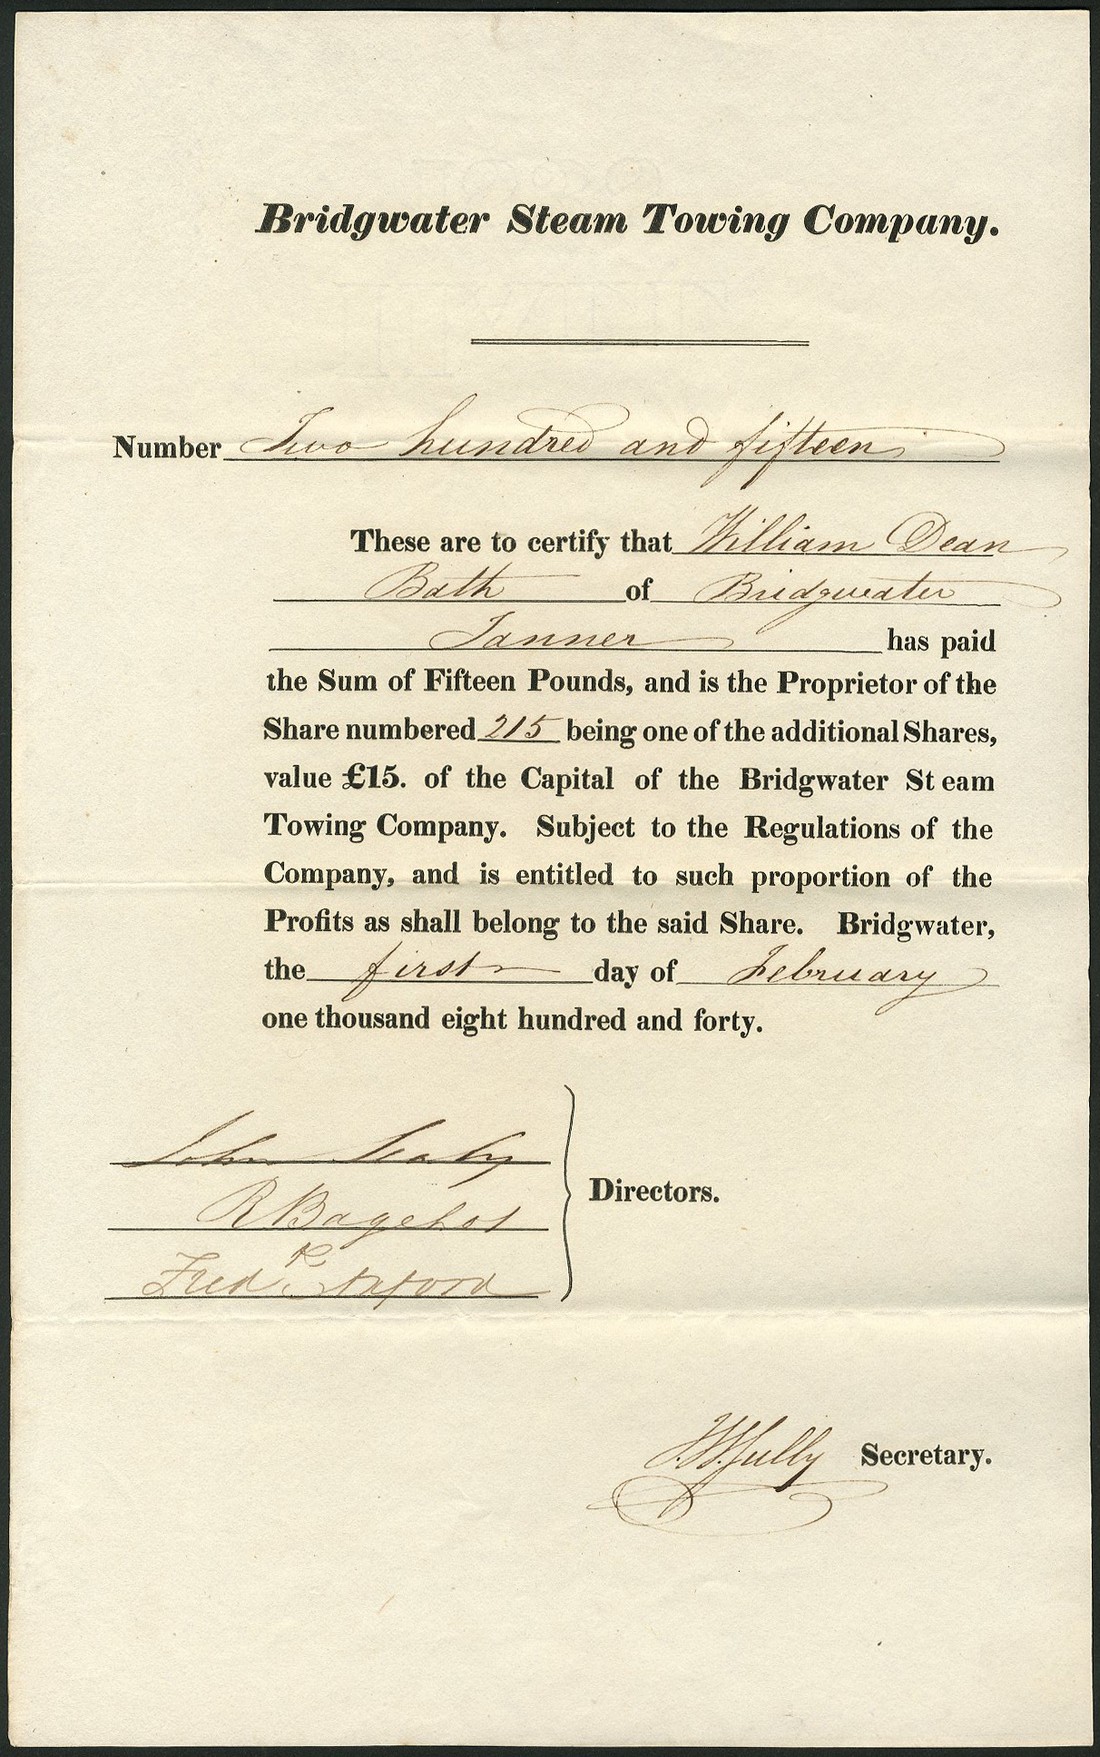 Bridgwater Steam Towing Company.
Number Two hundred and fifteen
These are to certify that William Dean
Bath of Bridgwater
Tanner has paid
the Sum of Fifteen Pounds, and is the Proprietor of the
Share numbered 215 being one of the additional Shares,
value £15. of the Capital of the Bridgwater St eam
Towing Company. Subject to the Regulations of the
Company, and is entitled to such proportion of the
Profits as shall belong to the said Share. Bridgwater,
the first day of February
one thousand eight hundred and forty.
John Sealy
R Bagehot
Directors.
Fredk Axford
Secretary.